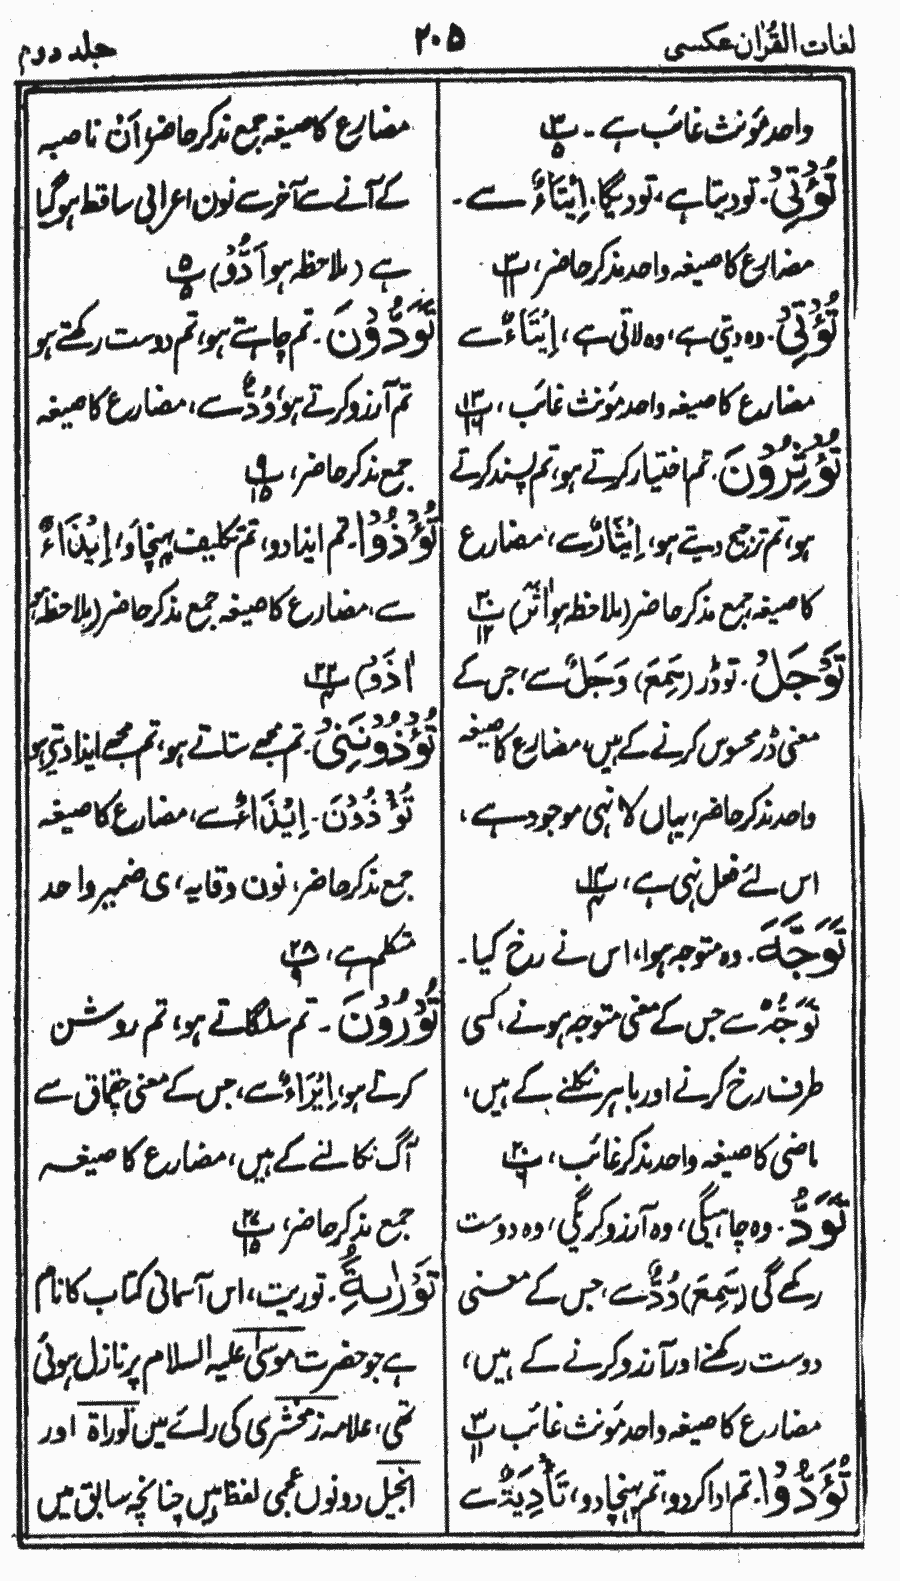 لغات القرآن عکسی
۲۰۵
جلد دوم
واحد مؤنث غائب ہے ۔ پ ۳ ۵
تُؤْتِیْ ۔ تو دیتا ہے، تو دیگا، اِیْتَاءٌ سے ۔
مضارع کا صیغہ واحد مذکر حاضر، پ ۳ ۱۱
تُؤْتِیْ ۔ وہ دیتی ہے، وہ لاتی ہے، اِیْتَاءٌ سے
مضارع کا صیغہ واحد مؤنث غائب، پ ۱۳ ۱۶
تُؤْثِرُوْنَ ۔ تم اختیار کرتے ہو، تم پسند کرتے
ہو، تم ترجیح دیتے ہو، اِیْثَارٌ سے، مضارع
کا صیغہ جمع مذکر حاضر (ملاحظہ ہو اٰثَرَ) پ ۳۰ ۱۲
تَوْجَلْ ۔ تو ڈر (سَمِعَ) وَجَلٌ سے، جس کے
معنی ڈر محسوس کرنے کے ہیں، مضارع کا صیغہ
واحد مذکر حاضر، یہاں لا نہی موجود ہے،
اس لئے فعل نہی ہے، پ ۱۴ ۴
تَوَجَّهَ ۔ وہ متوجہ ہوا، اس نے رخ کیا ۔
تَوَجُّهٌ سے جس کے معنی متوجہ ہونے، کسی
طرف رخ کرنے اور باہر نکلنے کے ہیں،
ماضی کا صیغہ واحد مذکر غائب، پ ۲۰ ۶
تَوَدُّ ۔ وہ چاہیگی، وہ آرزو کریگی، وہ دوست
رکھے گی (سَمِعَ) وُدٌّ سے، جس کے معنی
دوست رکھنے اور آرزو کرنے کے ہیں،
مضارع کا صیغہ واحد مؤنث غائب پ ۳ ۱۱
تُؤَدُّوْا ۔ تم ادا کر دو، تم پہنچا دو، تَأْدِيَةٌ سے
مضارع کا صیغہ جمع مذکر حاضر، اَنْ ناصبہ
کے آنے سے آخر سے نون اعرابی ساقط ہو گیا
ہے (ملاحظہ ہو اَدُّوْ) پ ۵ ۵
تَوَدُّوْنَ ۔ تم چاہتے ہو، تم دوست رکھتے ہو
تم آرزو کرتے ہو، وُدٌّ سے، مضارع کا صیغہ
جمع مذکر حاضر، پ ۹ ۱۵
تُؤْذُوْا ۔ تم ایذا دو، تم تکلیف پہنچاؤ، اِیْذَاءٌ
سے، مضارع کا صیغہ جمع مذکر حاضر (ملاحظہ ہو
اٰذَوْا) پ ۲۲ ۴
تُؤْذُوْنَنِیْ ۔ تم مجھے ستاتے ہو، تم مجھے ایذا دیتے ہو
تُؤْذُوْنَ ۔ اِیْذَاءٌ سے، مضارع کا صیغہ
جمع مذکر حاضر، نون وقایہ، ی ضمیر واحد
متکلم ہے، پ ۲۸ ۹
تُوْرُوْنَ ۔ تم سلگاتے ہو، تم روشن
کرتے ہو، اِیْرَاءٌ سے، جس کے معنی چقماق سے
آگ نکالنے کے ہیں، مضارع کا صیغہ
جمع مذکر حاضر، پ ۲۷ ۱۵
تَوْرٰىةٌ ۔ توریت، اس آسمانی کتاب کا نام
ہے جو حضرت موسیٰ علیہ السلام پر نازل ہوئی
تھی، علامہ زمخشری کی رائے میں توراۃ اور
انجیل دونوں عجمی لفظ ہیں چنانچہ سابق میں